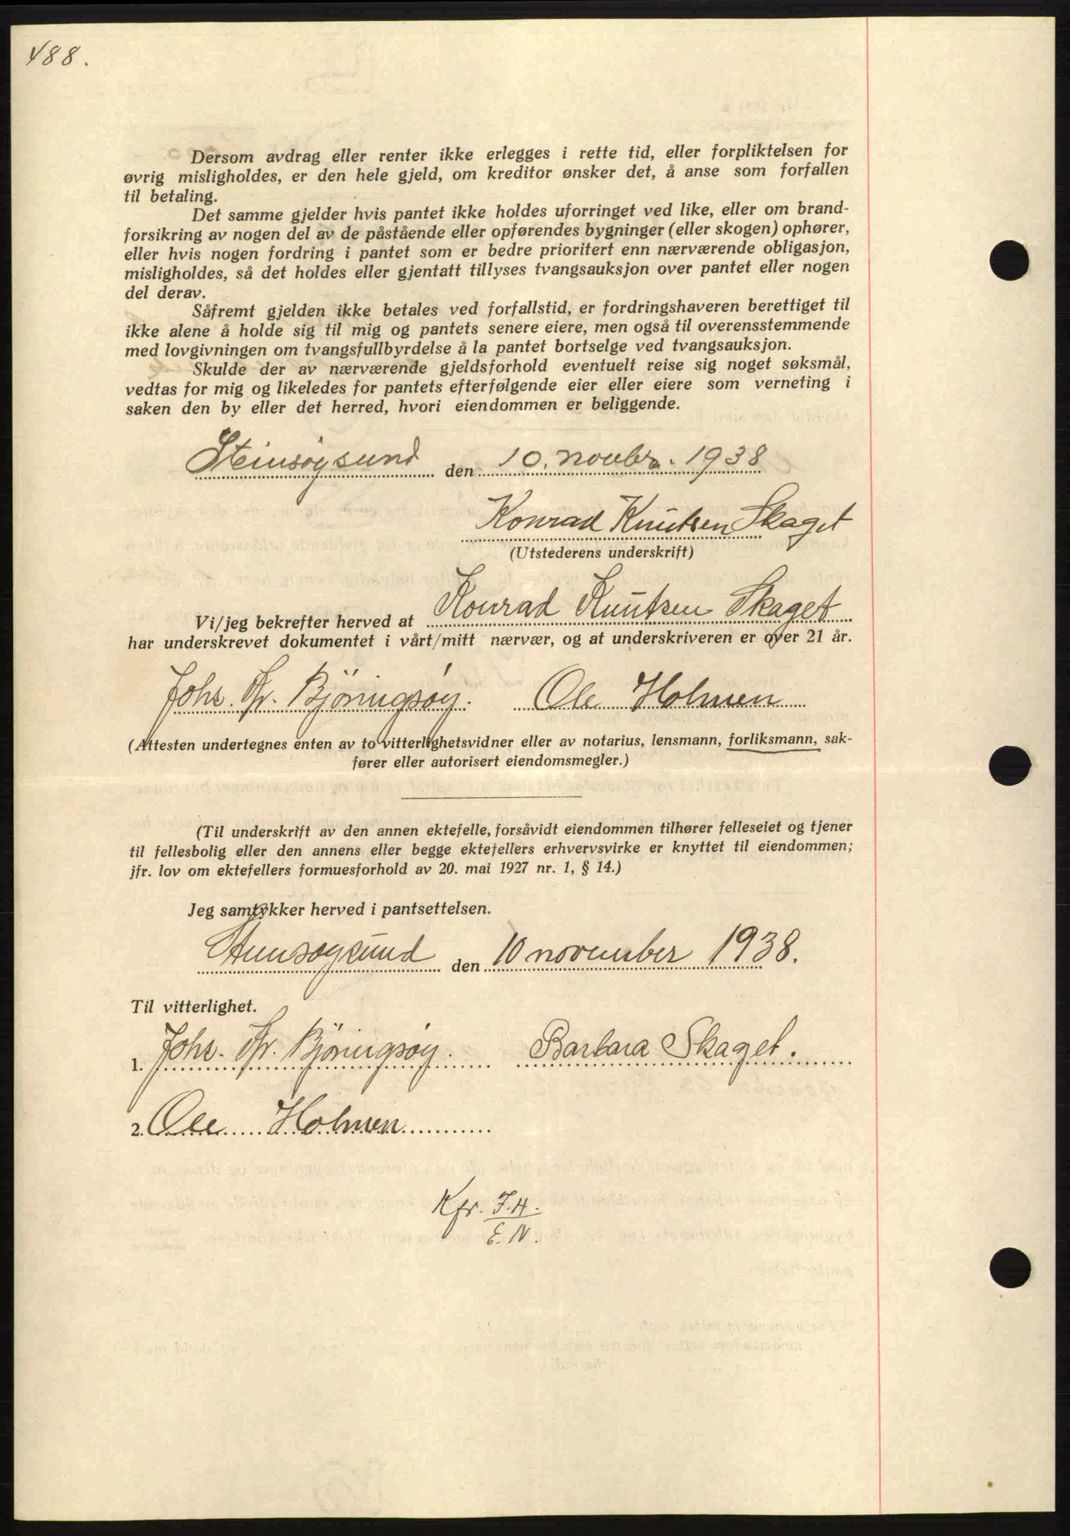 488.
Dersom avdrag eller renter ikke erlegges i rette tid, eller forpliktelsen for
øvrig misligholdes, er den hele gjeld, om kreditor ønsker det, å anse som forfallen
til betaling.
Det samme gjelder hvis pantet ikke holdes uforringet ved like, eller om brand-
forsikring av nogen del av de påstående eller opførendes bygninger (eller skogen) ophører,
eller hvis nogen fordring i pantet som er bedre prioritert enn nærværende obligasjon,
misligholdes, så det holdes eller gjentatt tillyses tvangsauksjon over pantet eller nogen
del derav.
Såfremt gjelden ikke betales ved forfallstid, er fordringshaveren berettiget til
ikke alene å holde sig til mig og pantets senere eiere, men også til overensstemmende
med lovgivningen om tvangsfullbyrdelse å la pantet bortselge ved tvangsauksjon.
Skulde der av nærværende gjeldsforhold eventuelt reise sig noget søksmål,
vedtas for mig og likeledes for pantets efterfølgende eier eller eiere som verneting i
saken den by eller det herred, hvori eiendommen er beliggende.
Steinsøysund den 10. novbr. 1938
Konrad Knutsen Skaget
(Utstederens underskrift)
Vi/jeg bekrefter herved at Konrad Knutsen Skaget
har underskrevet dokumentet i vårt/mitt nærvær, og at underskriveren er over 21 år.
Johs. Fr. Björingsøy. Ole Holmen
(Attesten undertegnes enten av to vitterlighetsvidner eller av notarius, lensmann, forliksmann, sak-
fører eller autorisert eiendomsmegler.)
(Til underskrift av den annen ektefelle, forsåvidt eiendommen tilhører felleseiet og tjener
til fellesbolig eller den annens eller begge ektefellers erhvervsvirke er knyttet til eiendommen;
jfr. lov om ektefellers formuesforhold av 20. mai 1927 nr. 1, § 14.)
Jeg samtykker herved i pantsettelsen.
Steinsøysund den 10 november 1938.
Til vitterlighet.
1. Johs. Fr. Björingsøy. Barbara Skaget.
2. Ole Holmen
Kfr. J.H.
E.N.